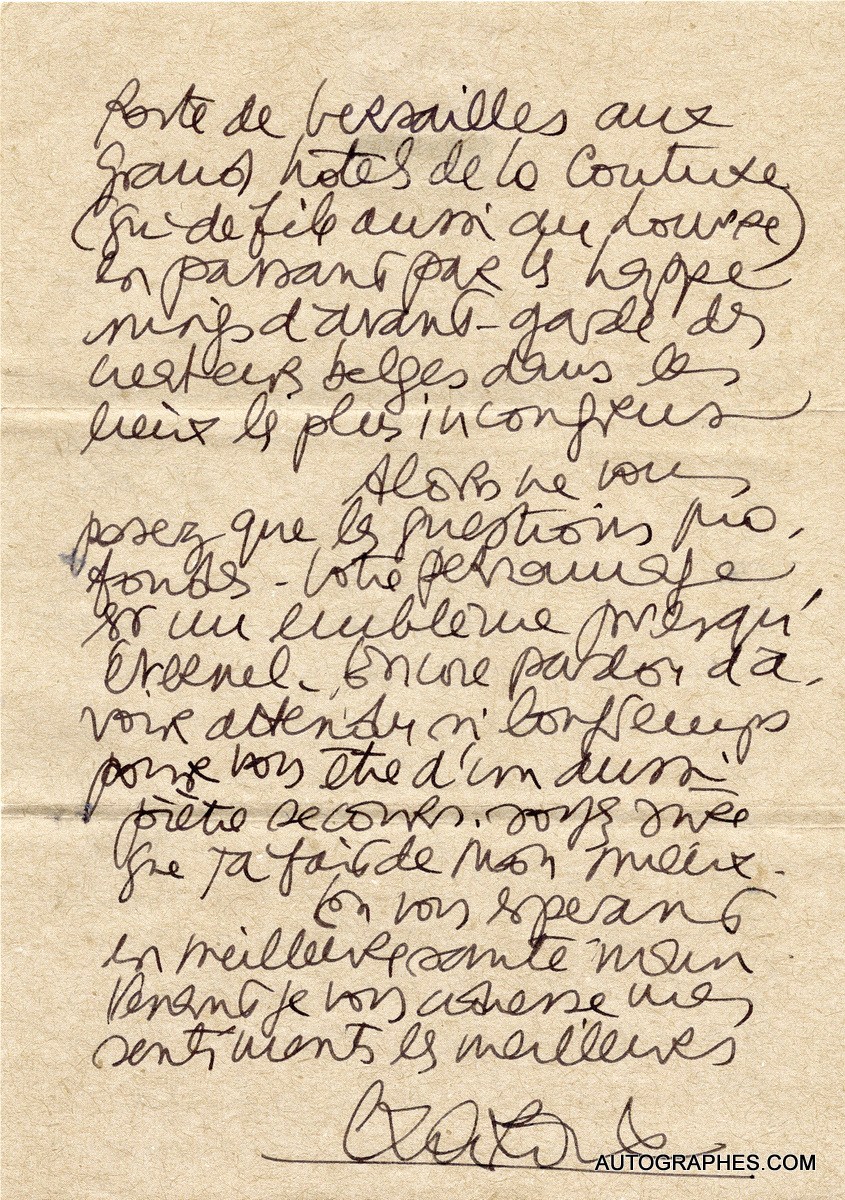 Porte de Versailles aux
grands hôtels de la Couture
(qui défile aussi au Louvre)
en passant par les happe
nings d'avant-garde des
créateurs belges dans les
lieux les plus incongrus
Alors ne vous
posez que les questions pro-
fondes - Votre personnage
est un emblème presqu'
éternel. Encore pardon d'a-
voir attendu si longtemps
pour vous être d'un aussi
piètre secours. soyez sûre
que j'ai fait de mon mieux.
En vous espérant
en meilleure santé main
tenant je vous adresse mes
sentiments les meilleurs
AUTOGRAPHES.COM